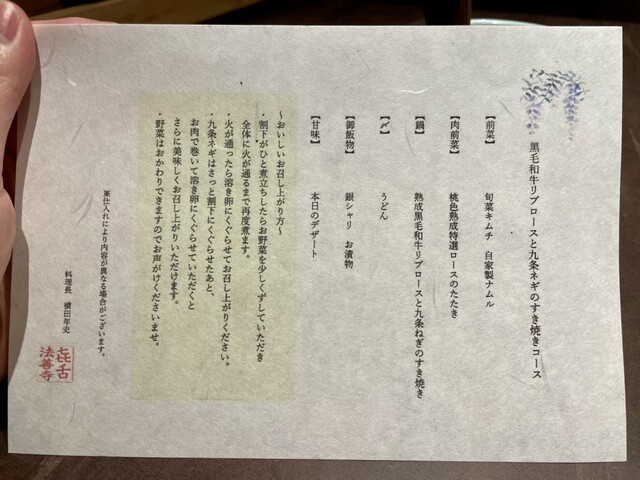 黒毛和牛リブロースと九条ネギのすき焼きコース
【前菜】 旬菜キムチ 自家製ナムル
【肉前菜】 桃色熟成特選ロースのたたき
【鍋】 熟成黒毛和牛リブロースと九条ねぎのすき焼き
【〆】 うどん
【御飯物】 銀シャリ お漬物
【甘味】 本日のデザート
～おいしいお召し上がり方～
・割下がひと煮立ちしたらお野菜を少しくずしていただき
全体に火が通るまで再度煮ます。
・火が通ったら溶き卵にくぐらせてお召し上がりください。
・九条ネギはさっと割下にくぐらせたあと、
お肉で巻いて溶き卵にくぐらせていただくと
さらに美味しくお召し上がりいただけます。
・野菜はおかわりできますのでお声がけくださいませ。
※仕入れにより内容が異なる場合がございます。
料理長 横田年史
㐂舌
法善寺